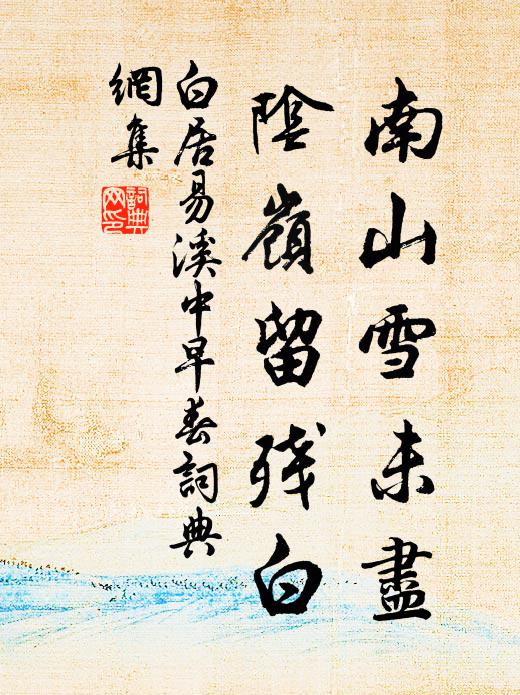 南山雪未盡
陰嶺留殘白
白居易溪中早春詞典
網集
詞典
网印